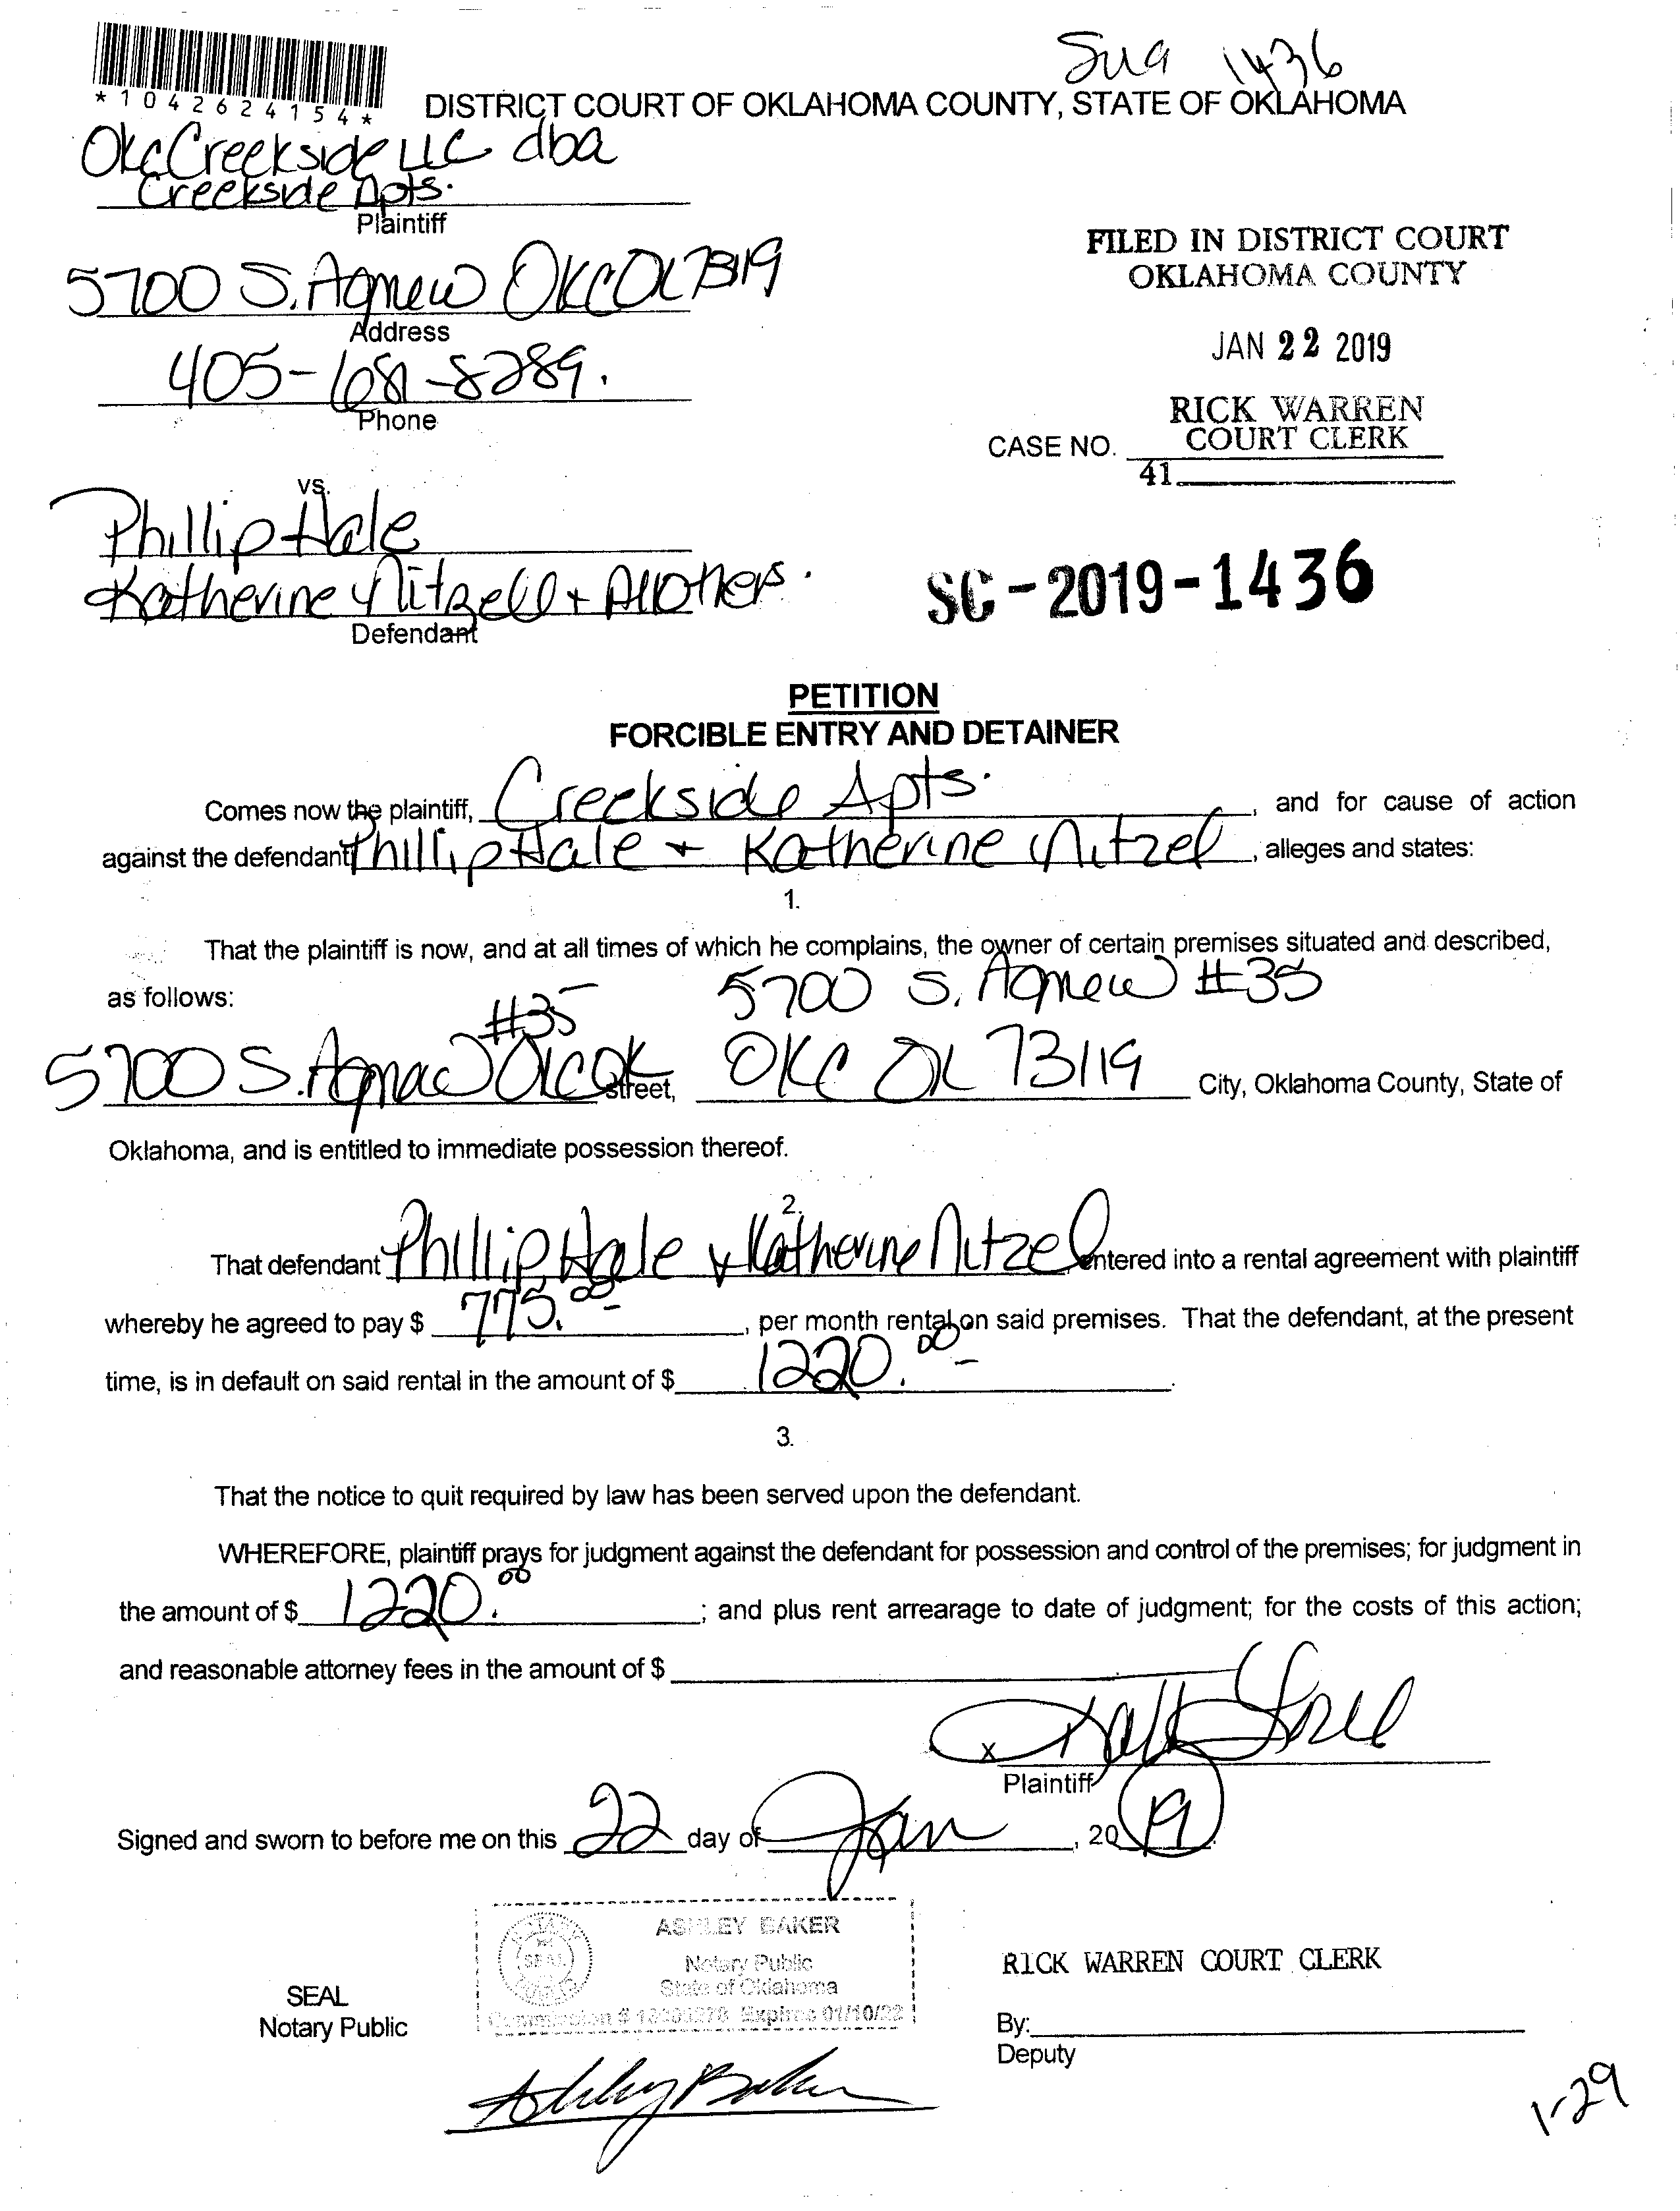 Sua 1436
*1042624154*
DISTRICT COURT OF OKLAHOMA COUNTY, STATE OF OKLAHOMA
OkcCreekside LLC dba
Creekside Apts.
Plaintiff
5700 S. Agnew OKC OK 73119
Address
405-681-8289.
Phone
FILED IN DISTRICT COURT
OKLAHOMA COUNTY
JAN 22 2019
RICK WARREN
COURT CLERK
CASE NO.
41
vs.
Phillip Hale
Katherine Nitzell + All Others.
Defendant
SC-2019-1436
PETITION
FORCIBLE ENTRY AND DETAINER
Comes now the plaintiff, Creekside Apts. , and for cause of action
against the defendant Phillip Hale + Katherine Nitzel , alleges and states:
1.
That the plaintiff is now, and at all times of which he complains, the owner of certain premises situated and described,
as follows: 5700 S. Agnew #35
#35
5700 S. Agnew OKC OK street, OKC OK 73119 City, Oklahoma County, State of
Oklahoma, and is entitled to immediate possession thereof.
2.
That defendant Phillip Hale & Katherine Nitzel entered into a rental agreement with plaintiff
whereby he agreed to pay $ 775.00- , per month rental on said premises. That the defendant, at the present
time, is in default on said rental in the amount of $ 1220.00- .
3.
That the notice to quit required by law has been served upon the defendant.
WHEREFORE, plaintiff prays for judgment against the defendant for possession and control of the premises; for judgment in
the amount of $ 1220.00 ; and plus rent arrearage to date of judgment; for the costs of this action;
and reasonable attorney fees in the amount of $
x
Plaintiff
Signed and sworn to before me on this 22 day of Jan , 20 19.
ASHLEY BAKER
Notary Public
State of Oklahoma
Expires 01/10/22
SEAL
Notary Public
RICK WARREN COURT CLERK
By:
Deputy
Ashley Baker
1-29